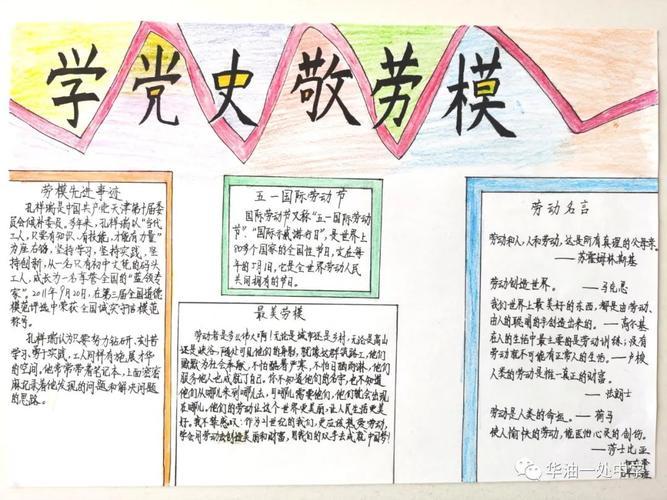 学党史敬劳模
劳模先进事迹
孔祥瑞是中国共产党天津第十届委
员会候补委员。多年来，孔祥瑞以“当代
工人，只要有知识、有技能，才能有力量”
为座右铭，坚持学习，坚持实践，坚
持创新，从一名只有初中文凭的码头
工人，成长为一名享誉全国的“蓝领专
家”。2011年9月20日，在第三届全国道德
模范评选中荣获全国诚实守信模范
称号。
孔祥瑞认为只要努力钻研，刻苦
学习、勇于实践，工人同样有施展才华
的空间，他常常带着笔记本，上面密密
麻麻记录着他发现的问题和解决问题
的思路。
五一国际劳动节
国际劳动节又称“五一国际劳动
节”“国际示威游行日”，是世界上
80多个国家的全国性节日，定在每
年的5月1日，它是全世界劳动人民
共同拥有的节日。
最美劳模
劳动者是多么伟大啊！无论是城市还是乡村，无论是高山
还是峡谷，随处可见他们的身影，
默默为社会奉献，不怕酷暑严寒，不怕日晒雨淋，他们
服务他人也成就了自己。你不知道他们的名字，也不知道
他们从哪儿来到哪儿去，可哪儿需要他们，他们就会出现
在哪儿，他们的劳动让这个世界更美丽，让人民生活更美
好。我不禁感叹：作为21世纪的我们，更应该热爱劳动，
学会用劳动去创造美丽和财富，用我们的双手去成就中国梦！
劳动名言
劳动和人，人和劳动，这是所有真理的父母亲。
——苏霍姆林斯基
劳动创造世界。——马克思
我们世界上最美好的东西，都是由劳动、
由人的聪明的手创造出来的。——高尔基
在人的生活中最主要的是劳动训练，没有
劳动就不可能有正常人的生活。——卢梭
人类的劳动是惟一真正的财富。
——法朗士
劳动是人类的命脉。——荷马
使人愉快的劳动，能医治心灵的创伤。
——莎士比亚
华油一处中学